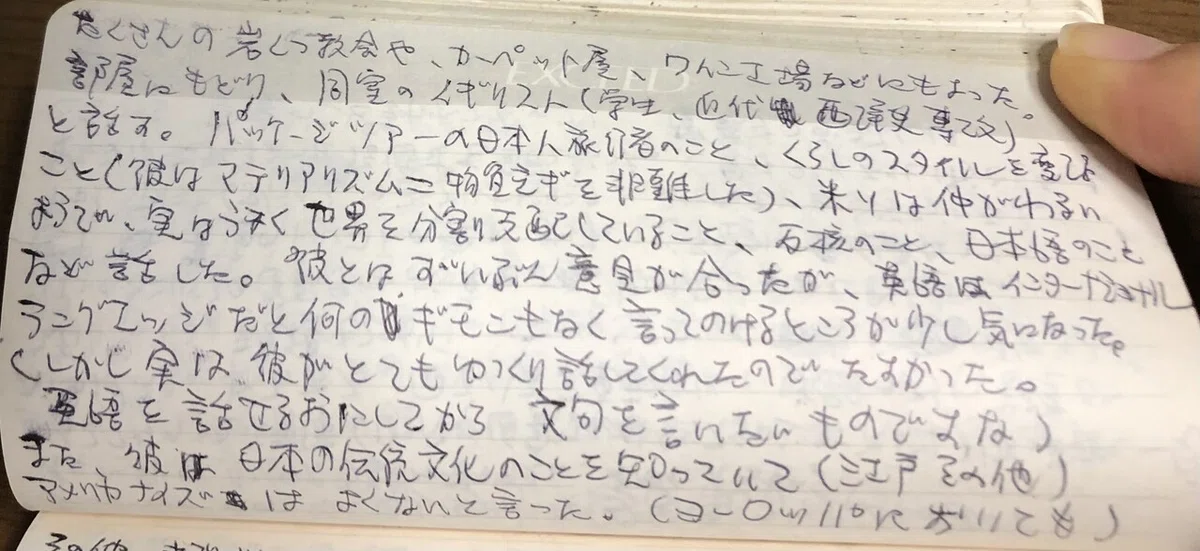 たくさんの岩くつ教会や、カーペット屋、ワイン工場などにもよった。
部屋にもどり、同室のイギリスト(学生、近代西洋史専攻)
と話す。パッケージツアーの日本人旅行者のこと、くらしのスタイルを変える
こと(彼はマテリアリズム=物質主ギを非難した)、米ソは仲がわるい
ようでい、実はうまく世界を分割支配していること、石核のこと、日本語のこと
など話した。彼とはずいぶん意見が合ったが、英語はインターナショナル
ラングエッジだと何のギモンもなく言ってのけるところが少し気になった。
(しかし実は彼がとてもゆっくり話してくれたのでたすかった。
英語を話せるようにしてから文句を言いたいものですな)
また、彼は日本の伝統文化のことを知っていて(江戸その他)
アメリカナイズはよくないと言った。(ヨーロッパにおいても)
その他